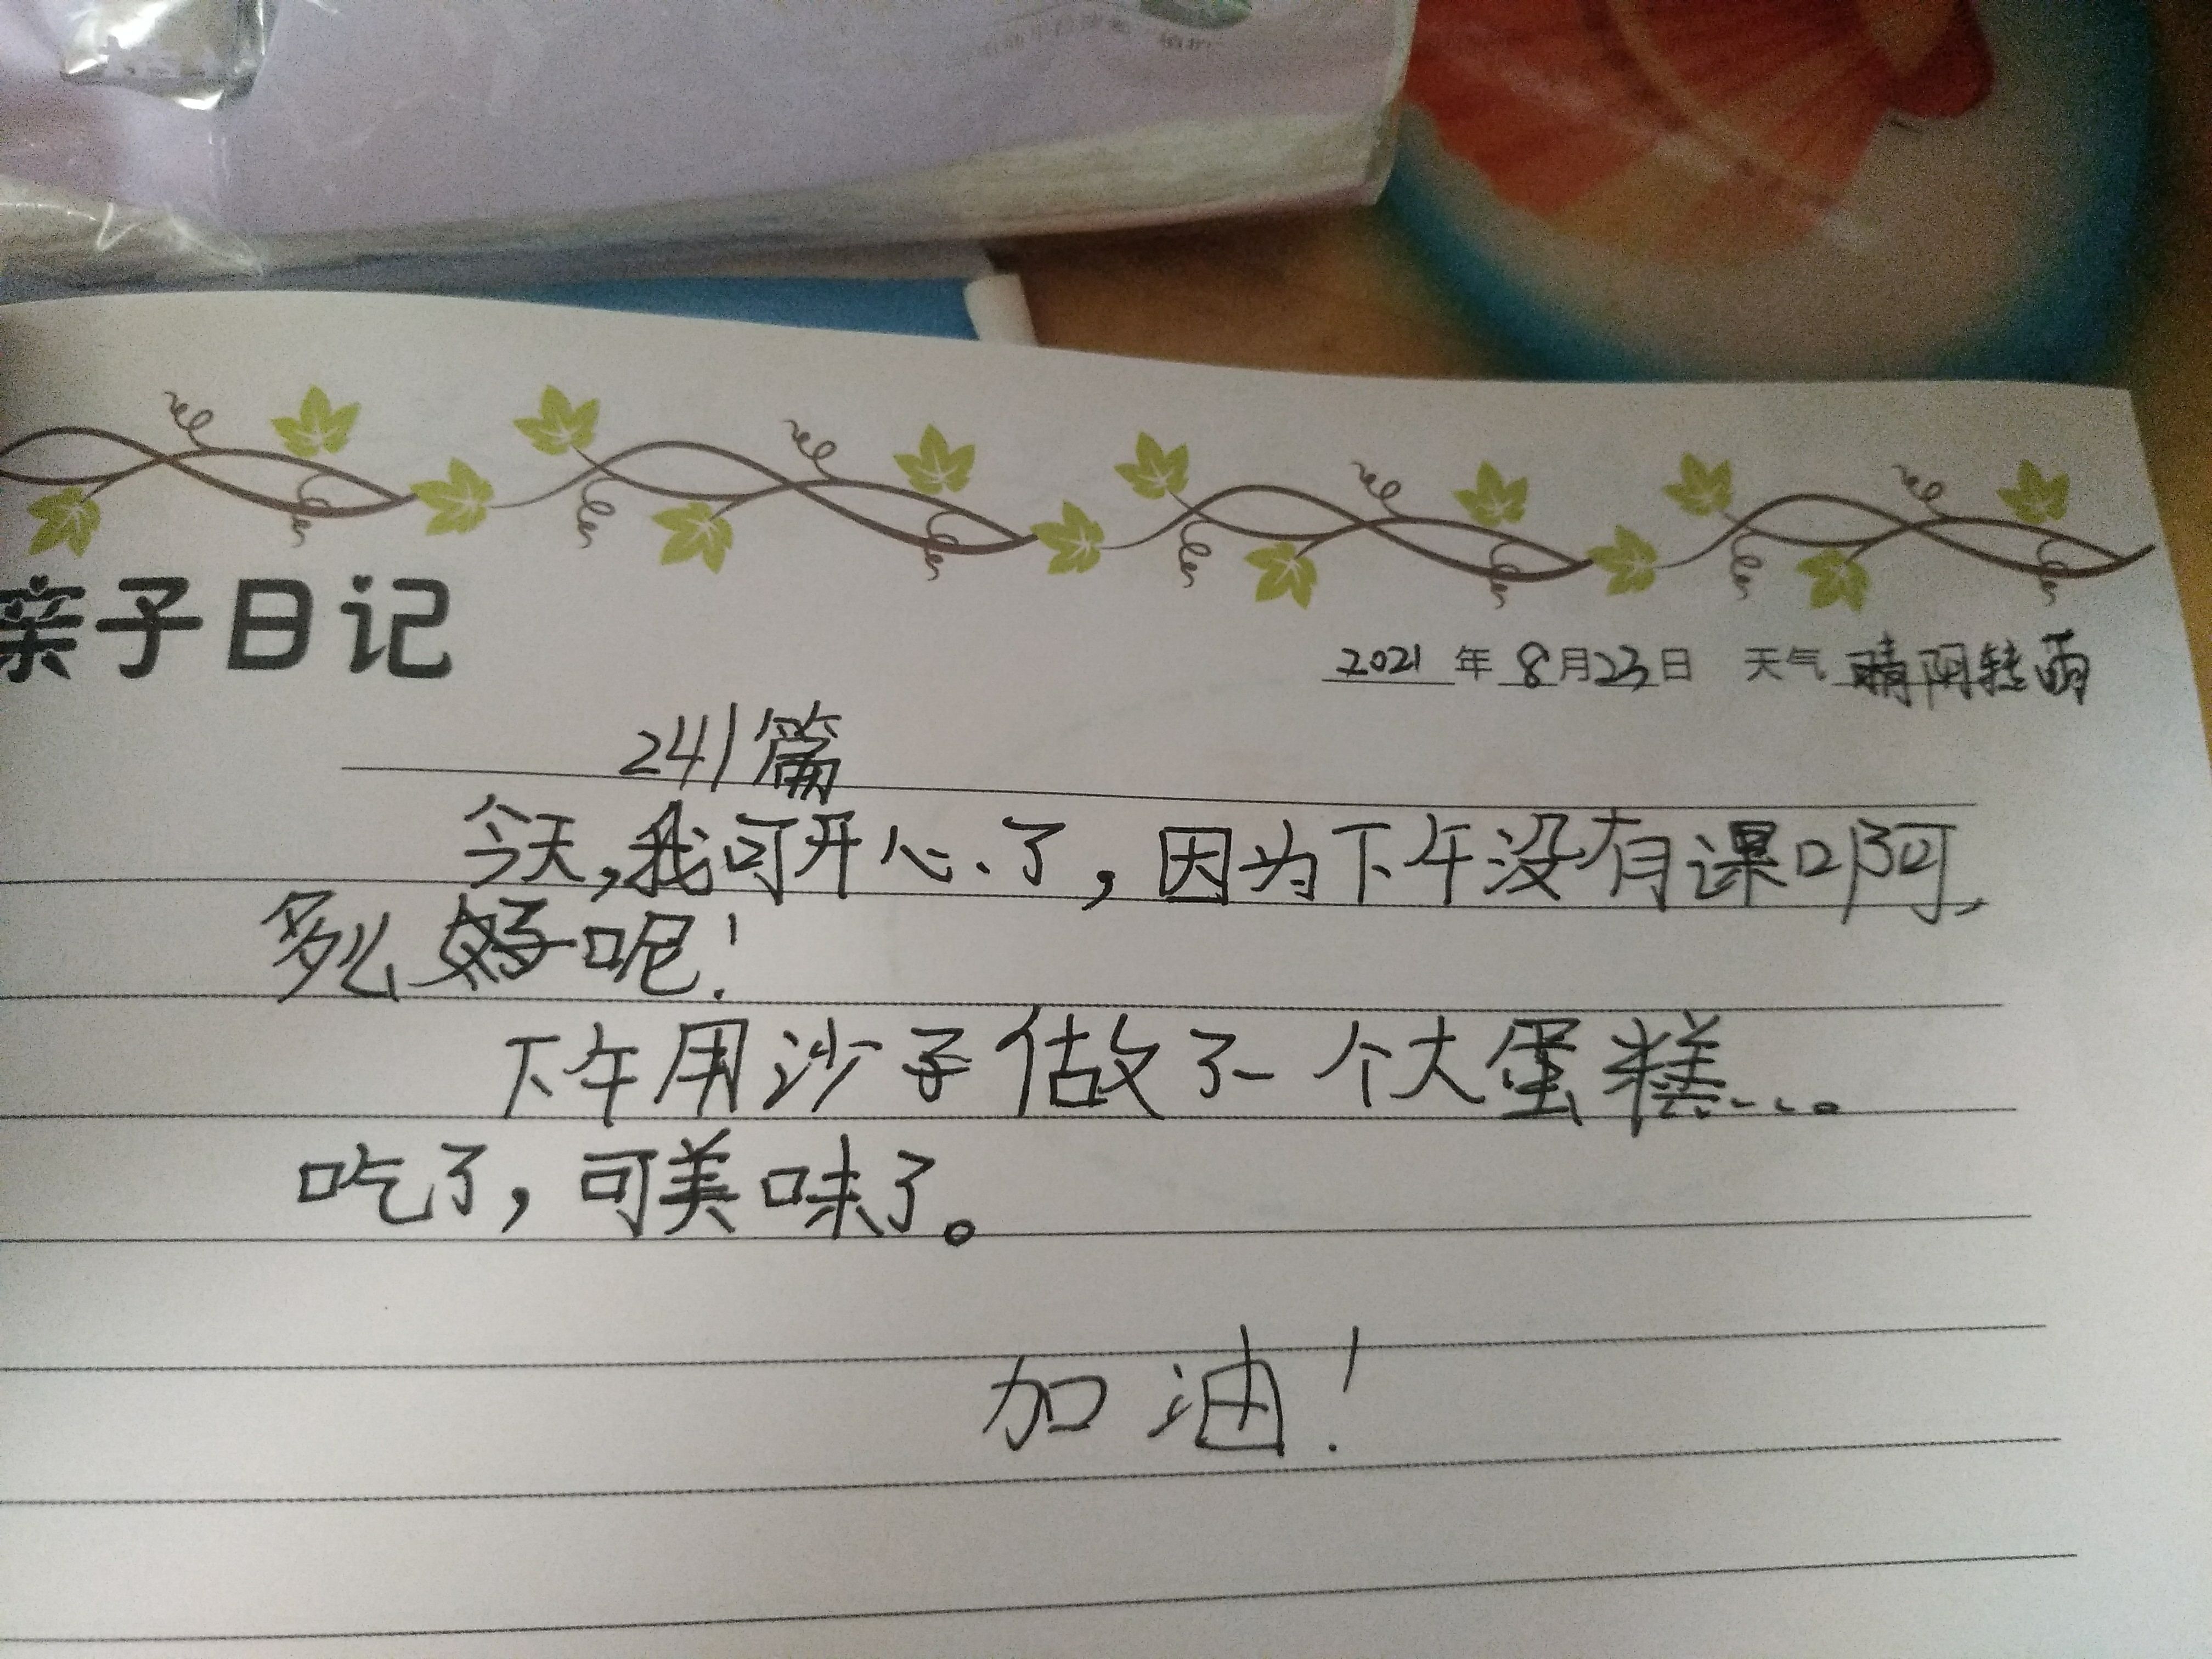 亲子日记
2021年8月23日 天气 晴阴转雨
241篇
今天,我可开心了,因为下午没有课啊,
多么好呢!
下午用沙子做了一个大蛋糕...。
吃了,可美味了。
加油!